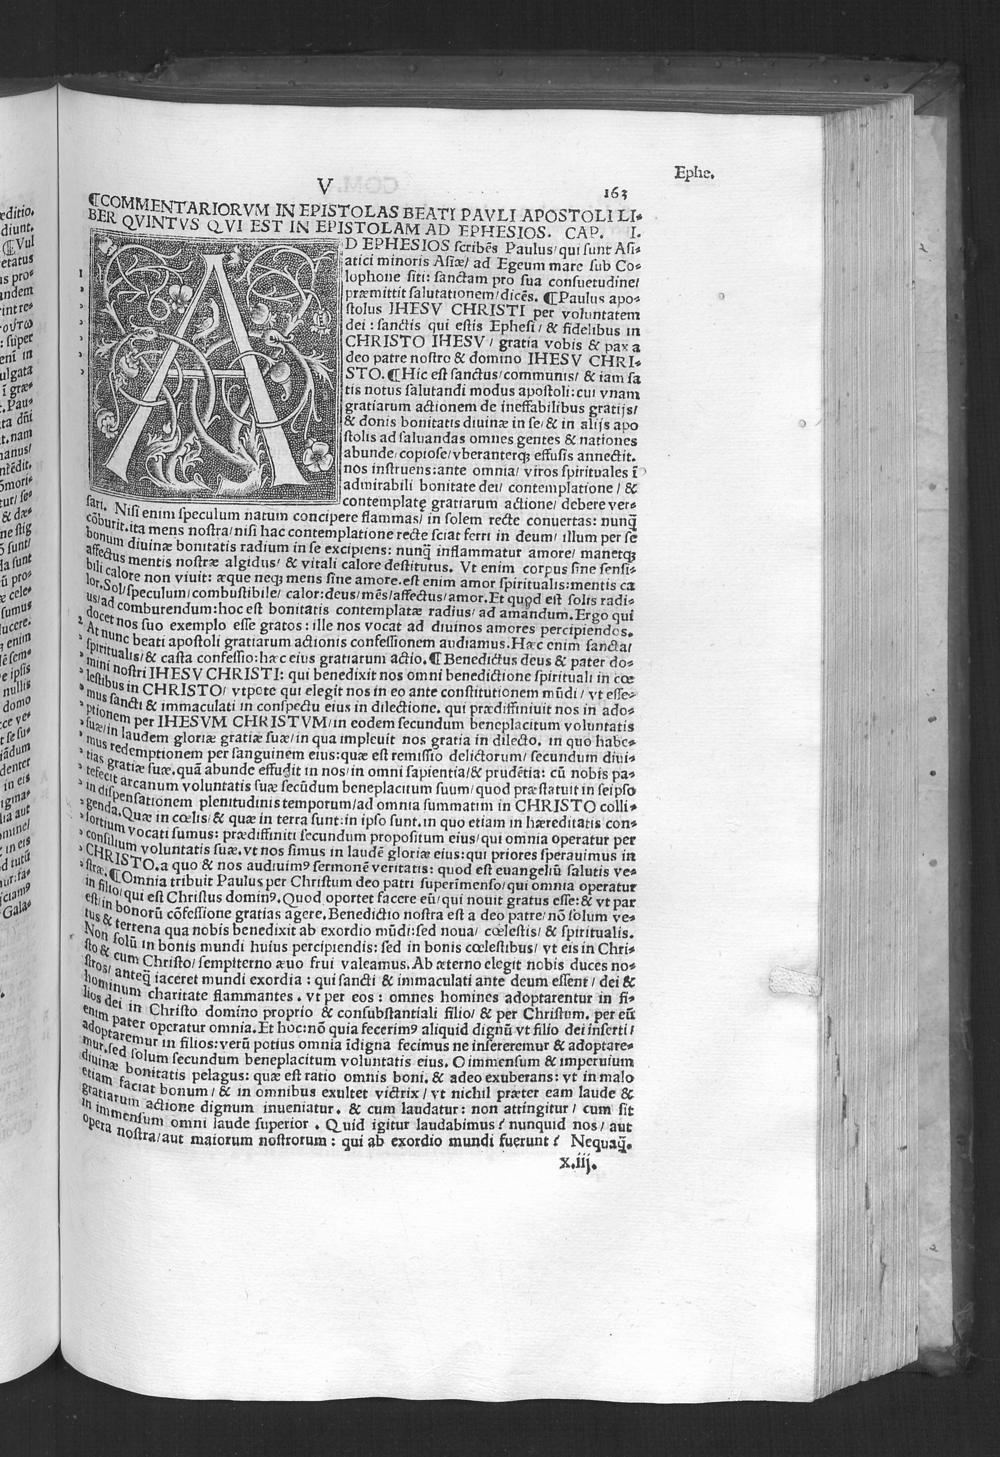 Ephe.
V
163
¶COMMENTARIORVM IN EPISTOLAS BEATI PAVLI APOSTOLI LI⸗
BER QVINTVS QVI EST IN EPISTOLAM AD EPHESIOS. CAP. I.
AD EPHESIOS scribēs Paulus/ qui sunt Asi⸗
atici minoris Asiæ/ ad Egeum mare sub Co⸗
lophone siti: sanctam pro sua consuetudine/
præmittit salutationem/ dicēs. ¶Paulus apo⸗
stolus IHESV CHRISTI per voluntatem
dei : sanctis qui estis Ephesi/ & fidelibus in
CHRISTO IHESV / gratia vobis & pax a
deo patre nostro & domino IHESV CHRI⸗
STO. ¶Hic est sanctus/ communis/ & iam sa
tis notus salutandi modus apostoli: cui vnam
gratiarum actionem de ineffabilibus gratijs/
& donis bonitatis diuinæ in se/ & in alijs apo
stolis ad saluandas omnes gentes & nationes
abunde/ copiose/ vberanterqꝫ effusis annectit.
nos instruens: ante omnia/ viros spirituales ī
admirabili bonitate dei/ contemplatione / &
contemplatę gratiarum actione/ debere ver⸗
sari. Nisi enim speculum natum concipere flammas/ in solem recte conuertas: nunq̄
cōburit. ita mens nostra/ nisi hac contemplatione recte sciat ferri in deum/ illum per se
bonum diuinæ bonitatis radium in se excipiens: nunq̄ inflammatur amore/ manetqꝫ
affectus mentis nostræ algidus/ & vitali calore destitutus. Vt enim corpus sine sensi⸗
bili calore non viuit: æque neqꝫ mens sine amore. est enim amor spiritualis: mentis ca
lor. Sol/ speculum/ combustibile/ calor: deus/ mēs/ affectus/ amor. Et quod est solis radi⸗
us/ ad comburendum: hoc est bonitatis contemplatæ radius/ ad amandum. Ergo qui
docet nos suo exemplo esse gratos : ille nos vocat ad diuinos amores percipiendos.
At nunc beati apostoli gratiarum actionis confessionem audiamus. Hæc enim sancta/
spiritualis/ & casta confessio: hæc eius gratiarum actio. ¶Benedictus deus & pater do⸗
mini nostri IHESV CHRISTI: qui benedixit nos omni benedictione spirituali in cœ
lestibus in CHRISTO/ vtpote qui elegit nos in eo ante constitutionem mūdi / vt esse⸗
mus sancti & immaculati in conspectu eius in dilectione. qui prædiffiniuit nos in ado⸗
ptionem per IHESVM CHRISTVM/ in eodem secundum beneplacitum voluntatis
suæ/ in laudem gloriæ gratiæ suæ/ in qua impleuit nos gratia in dilecto. in quo habe⸗
mus redemptionem per sanguinem eius: quæ est remissio delictorum/ secundum diui⸗
tias gratiæ suæ. quā abunde effudit in nos/ in omni sapientia/ & prudētia: cū nobis pa⸗
tefecit arcanum voluntatis suæ secūdum beneplacitum suum/ quod præstatuit in seipso
in dispensationem plenitudinis temporum/ ad omnia summatim in CHRISTO colli⸗
genda. Quæ in cœlis/ & quæ in terra sunt: in ipso sunt. in quo etiam in hæreditatis con⸗
sortium vocati sumus: prædiffiniti secundum propositum eius/ qui omnia operatur per
consilium voluntatis suæ. vt nos simus in laudē gloriæ eius: qui priores sperauimus in
CHRISTO. a quo & nos audiuimꝰ sermonē veritatis: quod est euangeliū salutis ve⸗
stræ. ¶Omnia tribuit Paulus per Christum deo patri superimenso/ qui omnia operatur
in filio/ qui est Christus dominꝰ. Quod oportet facere eū/ qui nouit gratus esse: & vt par
est/ in bonorū cōfessione gratias agere. Benedictio nostra est a deo patre/ nō solum ve⸗
tus & terrena qua nobis benedixit ab exordio mūdi: sed noua/ cœlestis/ & spiritualis.
Non solū in bonis mundi huius percipiendis: sed in bonis cœlestibus/ vt eis in Chri⸗
sto & cum Christo/ sempiterno æuo frui valeamus. Ab æterno elegit nobis duces no⸗
stros/ anteq̄ iaceret mundi exordia : qui sancti & immaculati ante deum essent/ dei &
hominum charitate flammantes . vt per eos : omnes homines adoptarentur in fi⸗
lios dei in Christo domino proprio & consubstantiali filio/ & per Christum. per eū
enim pater operatur omnia. Et hoc: nō quia fecerimꝰ aliquid dignū vt filio dei inserti/
adoptaremur in filios: verū potius omnia īdigna fecimus ne insereremur & adoptare⸗
mur. sed solum secundum beneplacitum voluntatis eius. O immensum & imperuium
diuinæ bonitatis pelagus: quæ est ratio omnis boni. & adeo exuberans: vt in malo
etiam faciat bonum/ & in omnibus exultet victrix/ vt nichil præter eam laude &
gratiarum actione dignum inueniatur. & cum laudatur: non attingitur/ cum sit
in immensum omni laude superior . Quid igitur laudabimus? nunquid nos/ aut
opera nostra/ aut maiorum nostrorum : qui ab exordio mundi fuerunt? Nequaq̄.
x.iij.